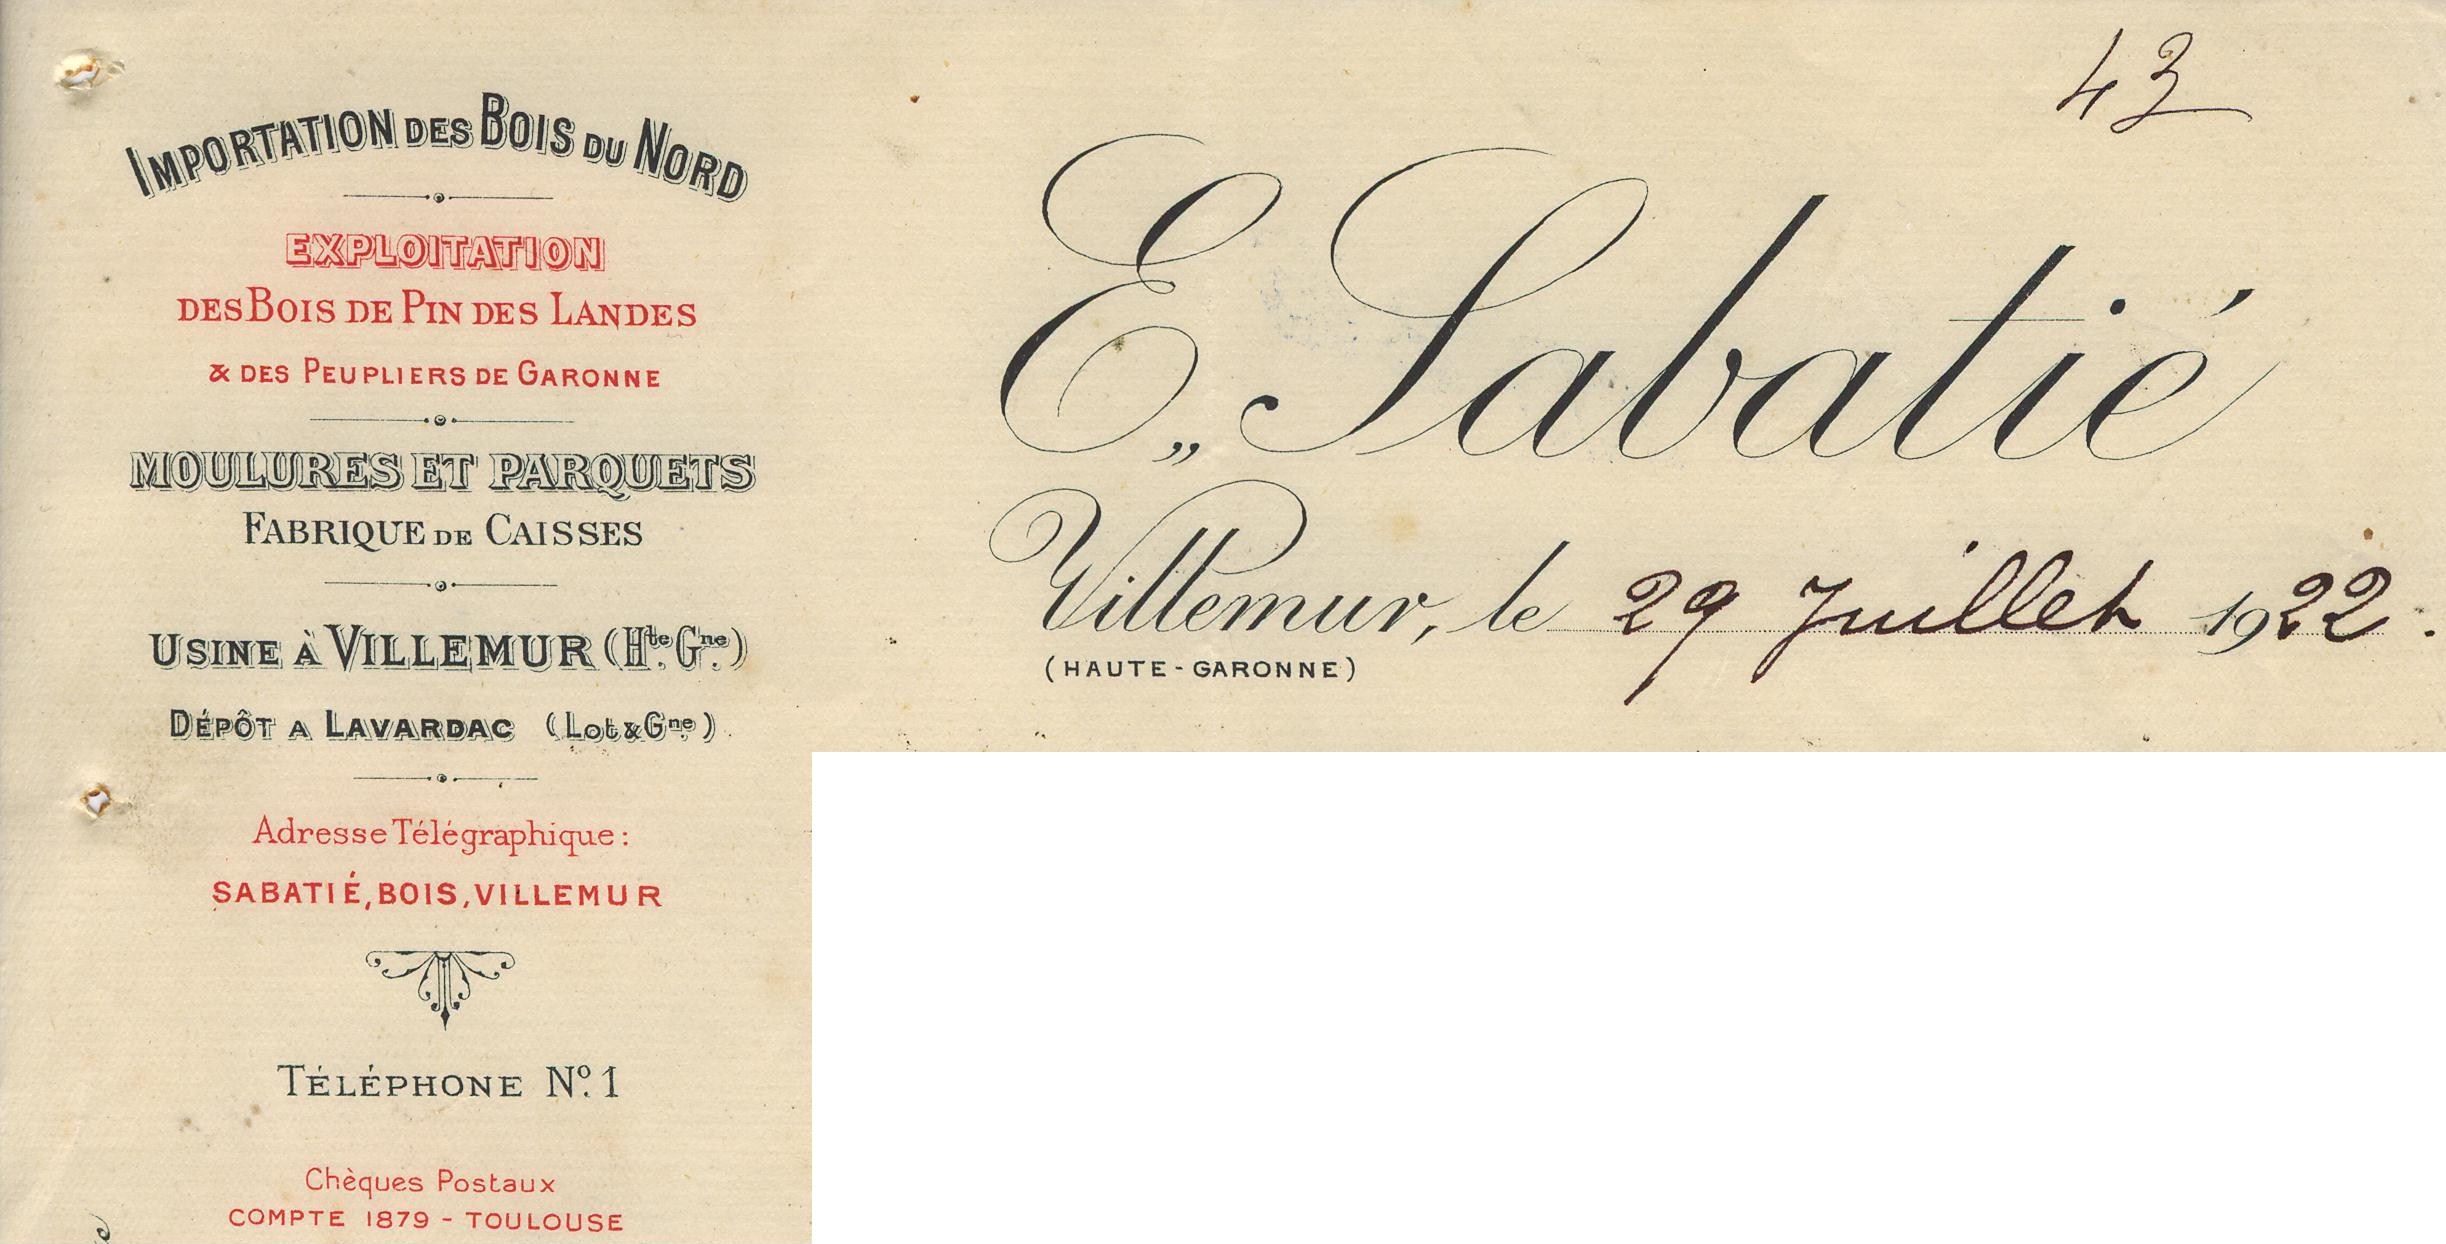 IMPORTATION DES BOIS DU NORD
EXPLOITATION
DES BOIS DE PIN DES LANDES
& DES PEUPLIERS DE GARONNE
MOULURES ET PARQUETS
FABRIQUE DE CAISSES
USINE À VILLEMUR (Hte. Gne.)
DÉPÔT A LAVARDAC (Lot & Gne.)
Adresse Télégraphique :
SABATIÉ, BOIS, VILLEMUR
TÉLÉPHONE No. 1
Chèques Postaux
COMPTE 1879 - TOULOUSE
43
E,, Sabatié
Villemur, le 29 Juillet 1922.
(HAUTE-GARONNE)